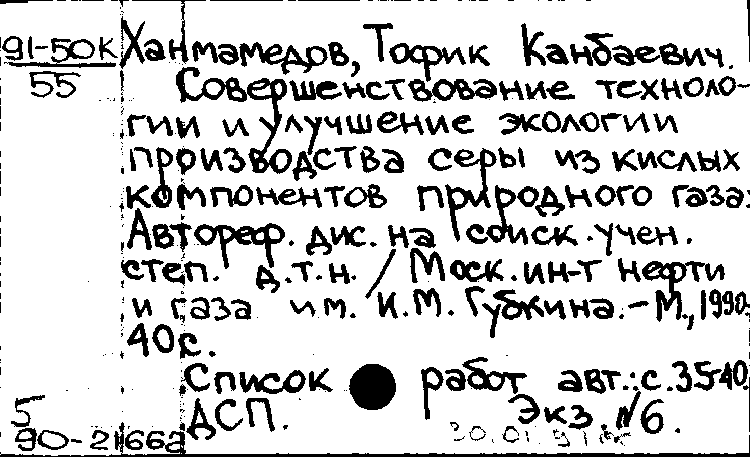 91-50К Ханмамедов, Тофик Канбаевич.
55 Совершенствование техноло-
гии и улучшение экологии
производства серы из кислых
компонентов природного газа:
Автореф. дис. на соиск. учен.
степ. д.т.н. / Моск. ин-т нефти
и газа им. И.М. Губкина. – М., 1990.
40с.
Список работ авт.: с. 35-40.
5 ДСП. Экз. №6.
90-21166а 30.01.91